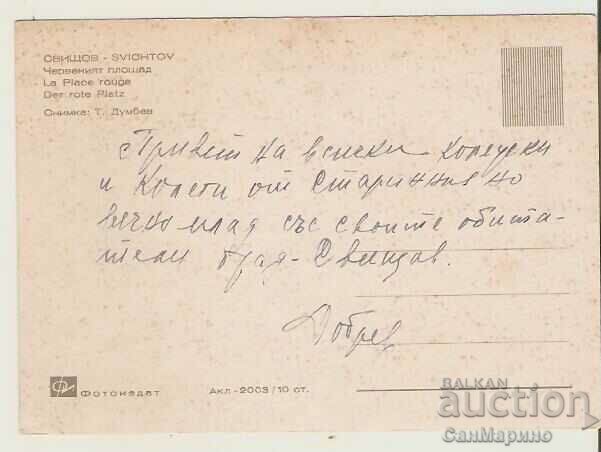 СВИЩОВ - SVICHTOV
Червеният площад
La Place rouge
Der rote Platz
Снимка: Т. Думбев
Привет на всички колежки
и колеги от старинния но
вечно млад със своите обита-
тели град - Свищов.
Добрев
Фотоиздат
Акл - 2003 / 10 ст.
BALKAN
auction
СанМарино